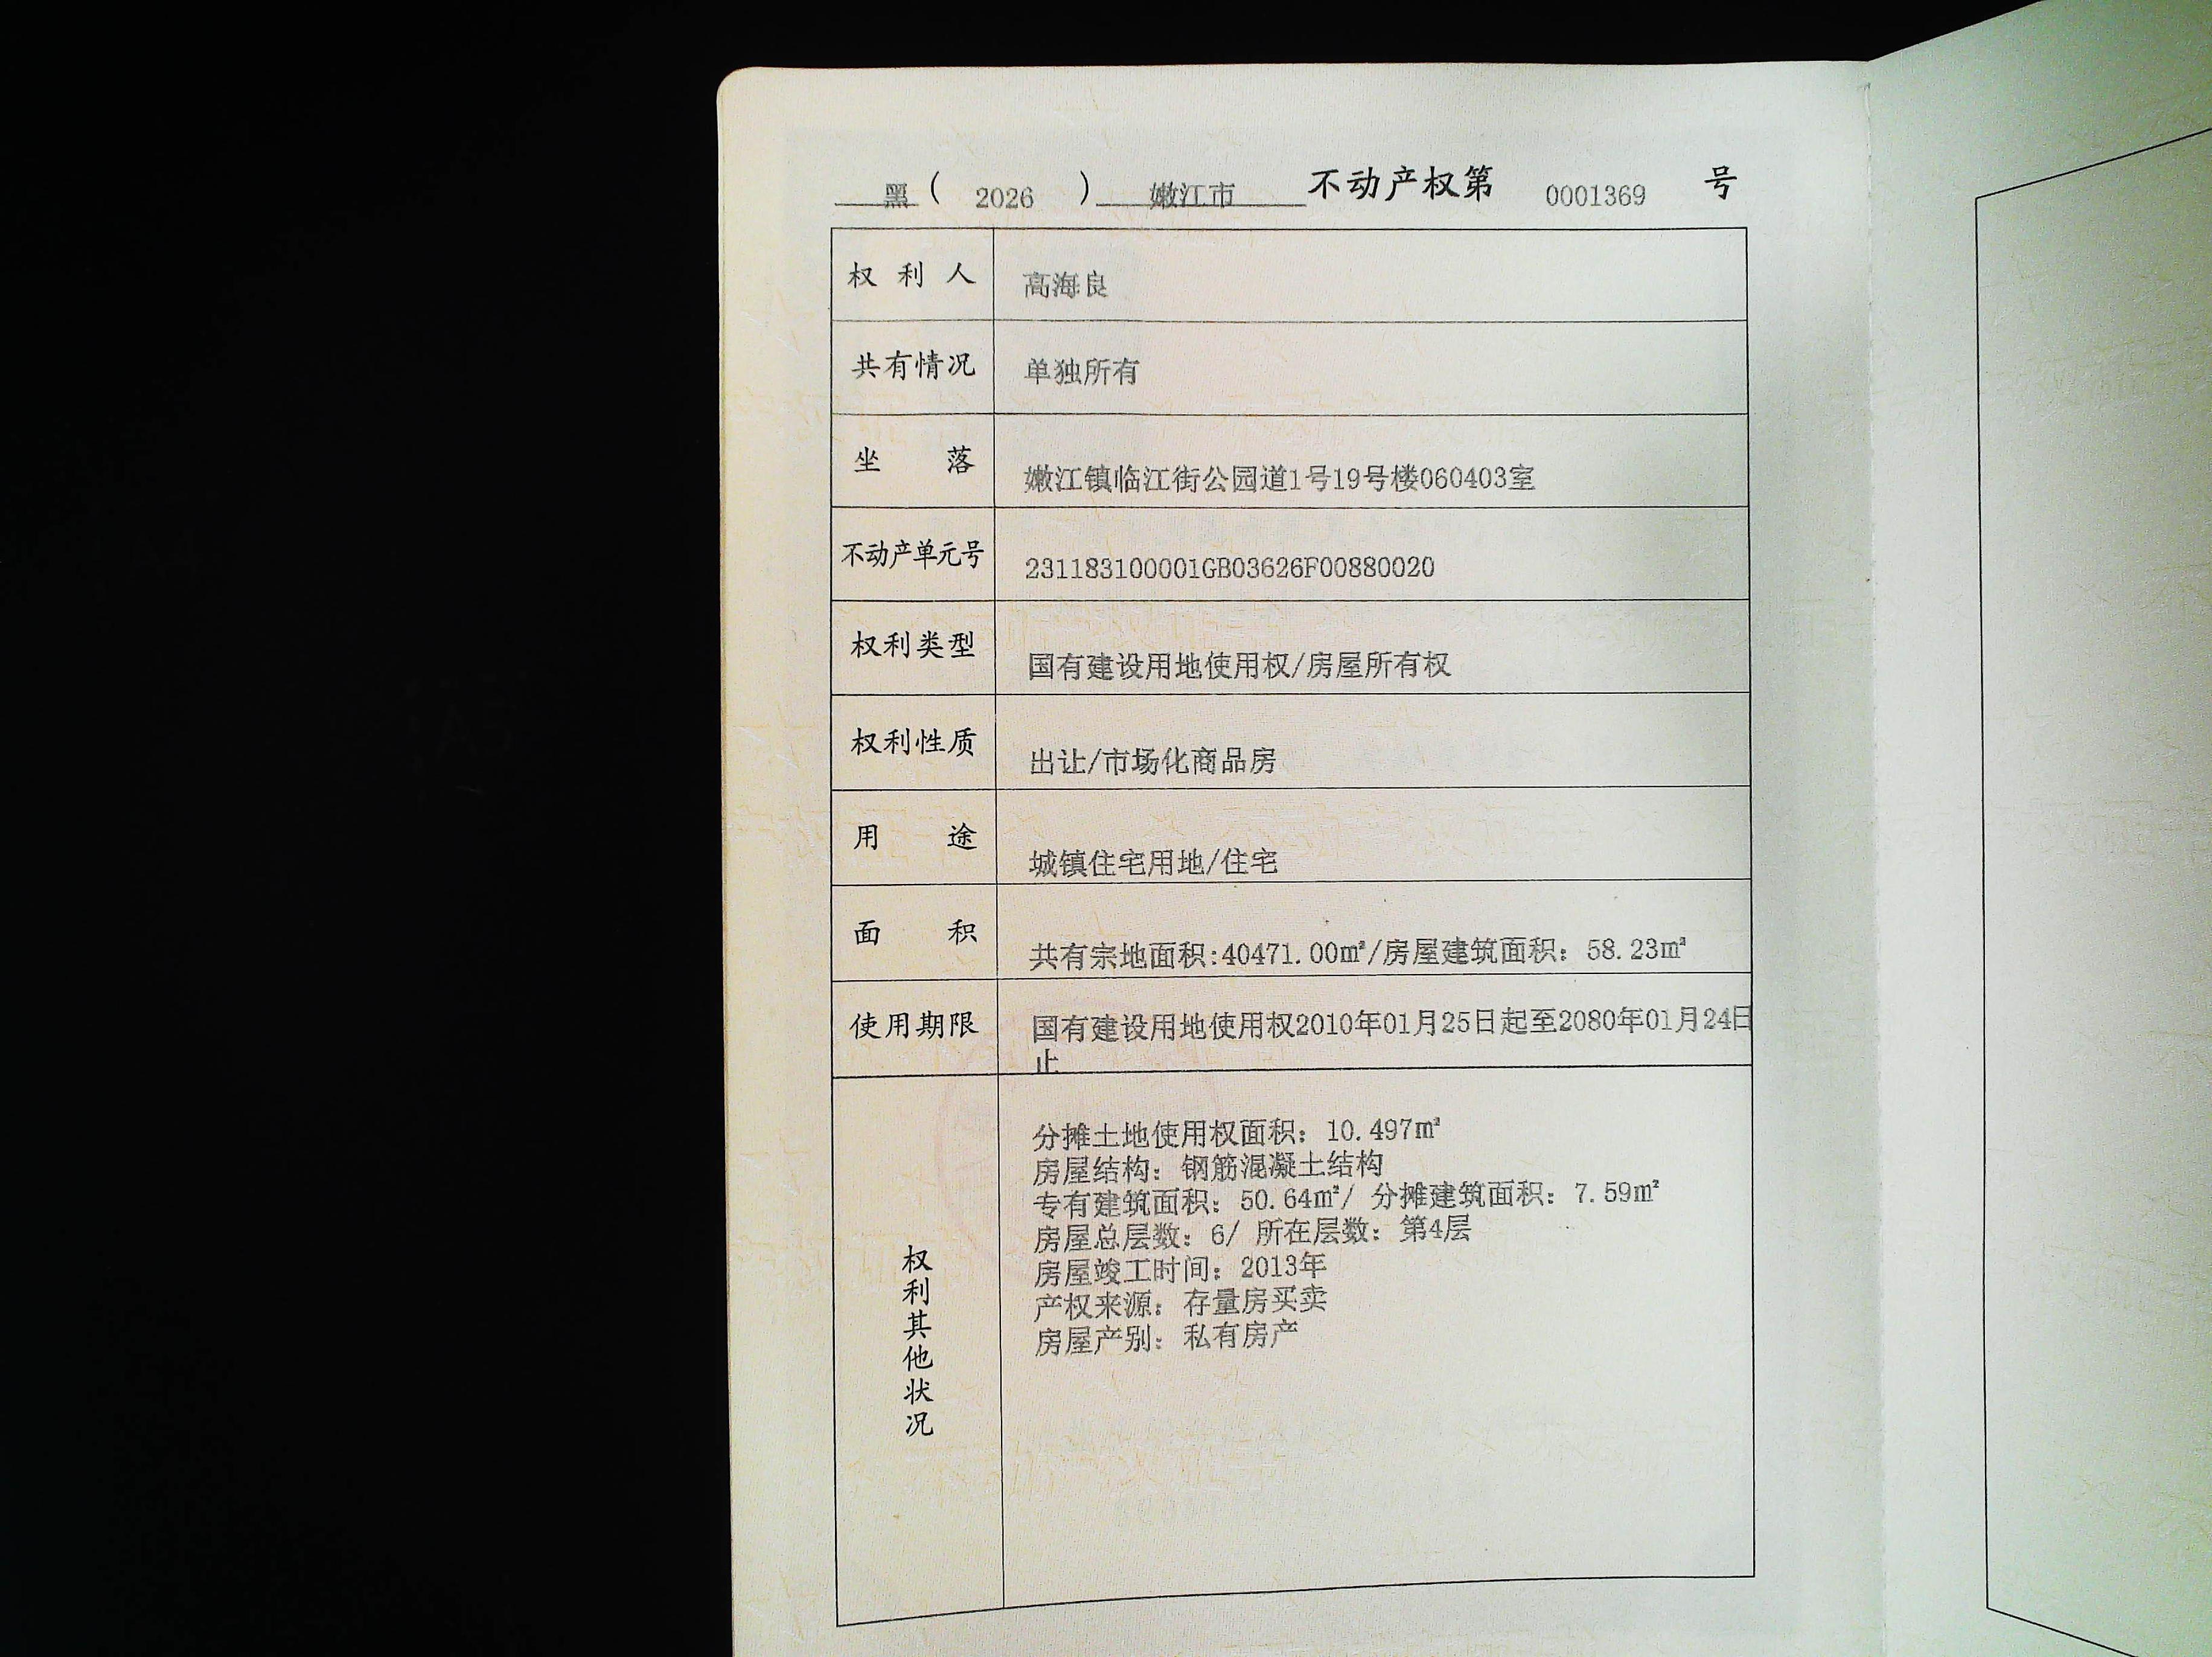 黑（ 2026 ）嫩江市 不动产权第 0001369 号
权利人 高海良
共有情况 单独所有
坐落 嫩江镇临江街公园道1号19号楼060403室
不动产单元号 231183100001GB03626F00880020
权利类型 国有建设用地使用权/房屋所有权
权利性质 出让/市场化商品房
用途 城镇住宅用地/住宅
面积 共有宗地面积:40471.00㎡/房屋建筑面积：58.23㎡
使用期限 国有建设用地使用权2010年01月25日起至2080年01月24日
止
权利其他状况
分摊土地使用权面积：10.497㎡
房屋结构：钢筋混凝土结构
专有建筑面积：50.64㎡/ 分摊建筑面积：7.59㎡
房屋总层数：6/ 所在层数：第4层
房屋竣工时间：2013年
产权来源：存量房买卖
房屋产别：私有房产